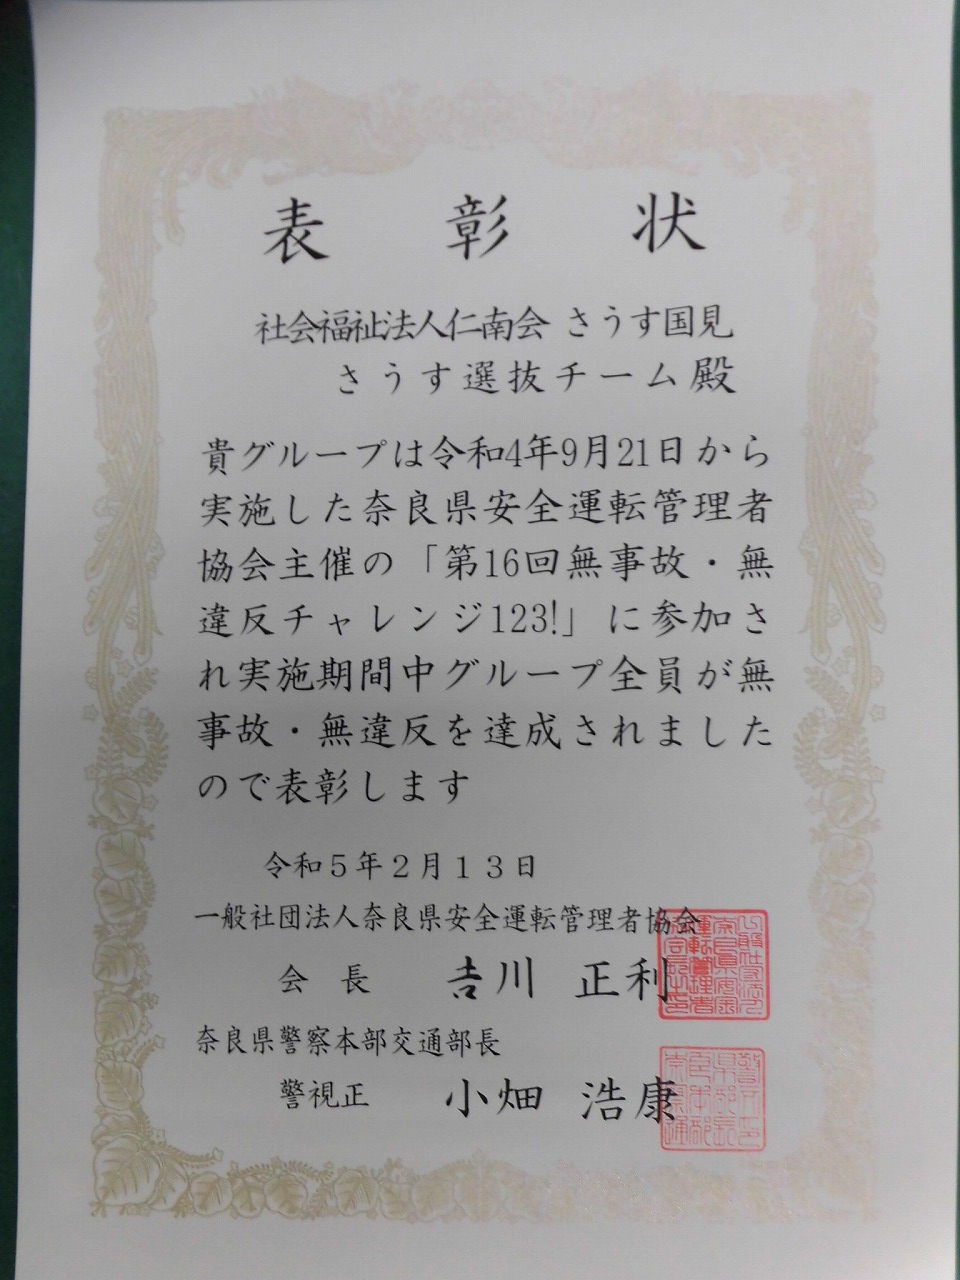 表彰状
社会福祉法人仁南会 さうす国見
さうす選抜チーム殿
貴グループは令和4年9月21日から
実施した奈良県安全運転管理者
協会主催の「第16回無事故・無
違反チャレンジ123!」に参加さ
れ実施期間中グループ全員が無
事故・無違反を達成されました
ので表彰します
令和５年２月１３日
一般社団法人奈良県安全運転管理者協会
会長 𠮷川 正利
奈良県警察本部交通部長
警視正 小畑 浩康